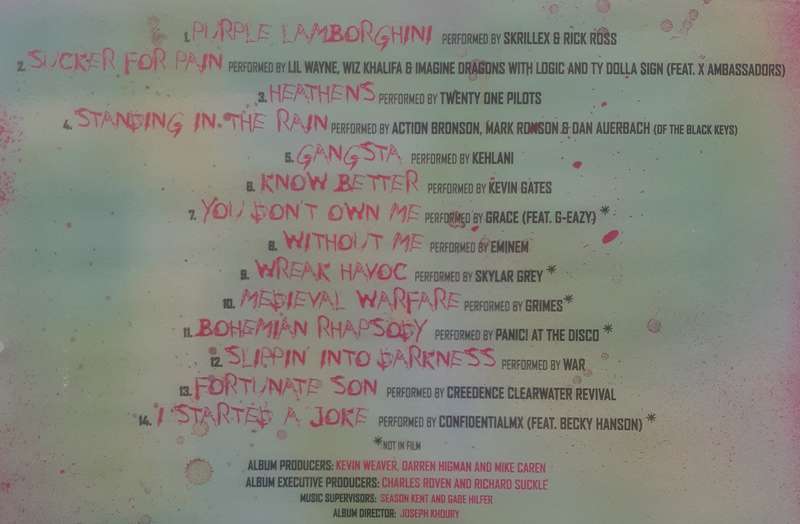 1. PURPLE LAMBORGHINI PERFORMED BY SKRILLEX & RICK ROSS
2. SUCKER FOR PAIN PERFORMED BY LIL WAYNE, WIZ KHALIFA & IMAGINE DRAGONS WITH LOGIC AND TY DOLLA $IGN (FEAT. X AMBASSADORS)
3. HEATHENS PERFORMED BY TWENTY ONE PILOTS
4. STANDING IN THE RAIN PERFORMED BY ACTION BRONSON, MARK RONSON & DAN AUERBACH (OF THE BLACK KEYS)
5. GANGSTA PERFORMED BY KEHLANI
6. KNOW BETTER PERFORMED BY KEVIN GATES
7. YOU DON'T OWN ME PERFORMED BY GRACE (FEAT. G-EAZY) *
8. WITHOUT ME PERFORMED BY EMINEM
9. WREAK HAVOC PERFORMED BY SKYLAR GREY *
10. MEDIEVAL WARFARE PERFORMED BY GRIMES*
11. BOHEMIAN RHAPSODY PERFORMED BY PANIC! AT THE DISCO *
12. SLIPPIN' INTO DARKNESS PERFORMED BY WAR
13. FORTUNATE SON PERFORMED BY CREEDENCE CLEARWATER REVIVAL
14. I STARTED A JOKE PERFORMED BY CONFIDENTIALMX (FEAT. BECKY HANSON) *
*NOT IN FILM
ALBUM PRODUCERS: KEVIN WEAVER, DARREN HIGMAN AND MIKE CAREN
ALBUM EXECUTIVE PRODUCERS: CHARLES ROVEN AND RICHARD SUCKLE
MUSIC SUPERVISORS: SEASON KENT AND GABE HILFER
ALBUM DIRECTOR: JOSEPH KHOURY